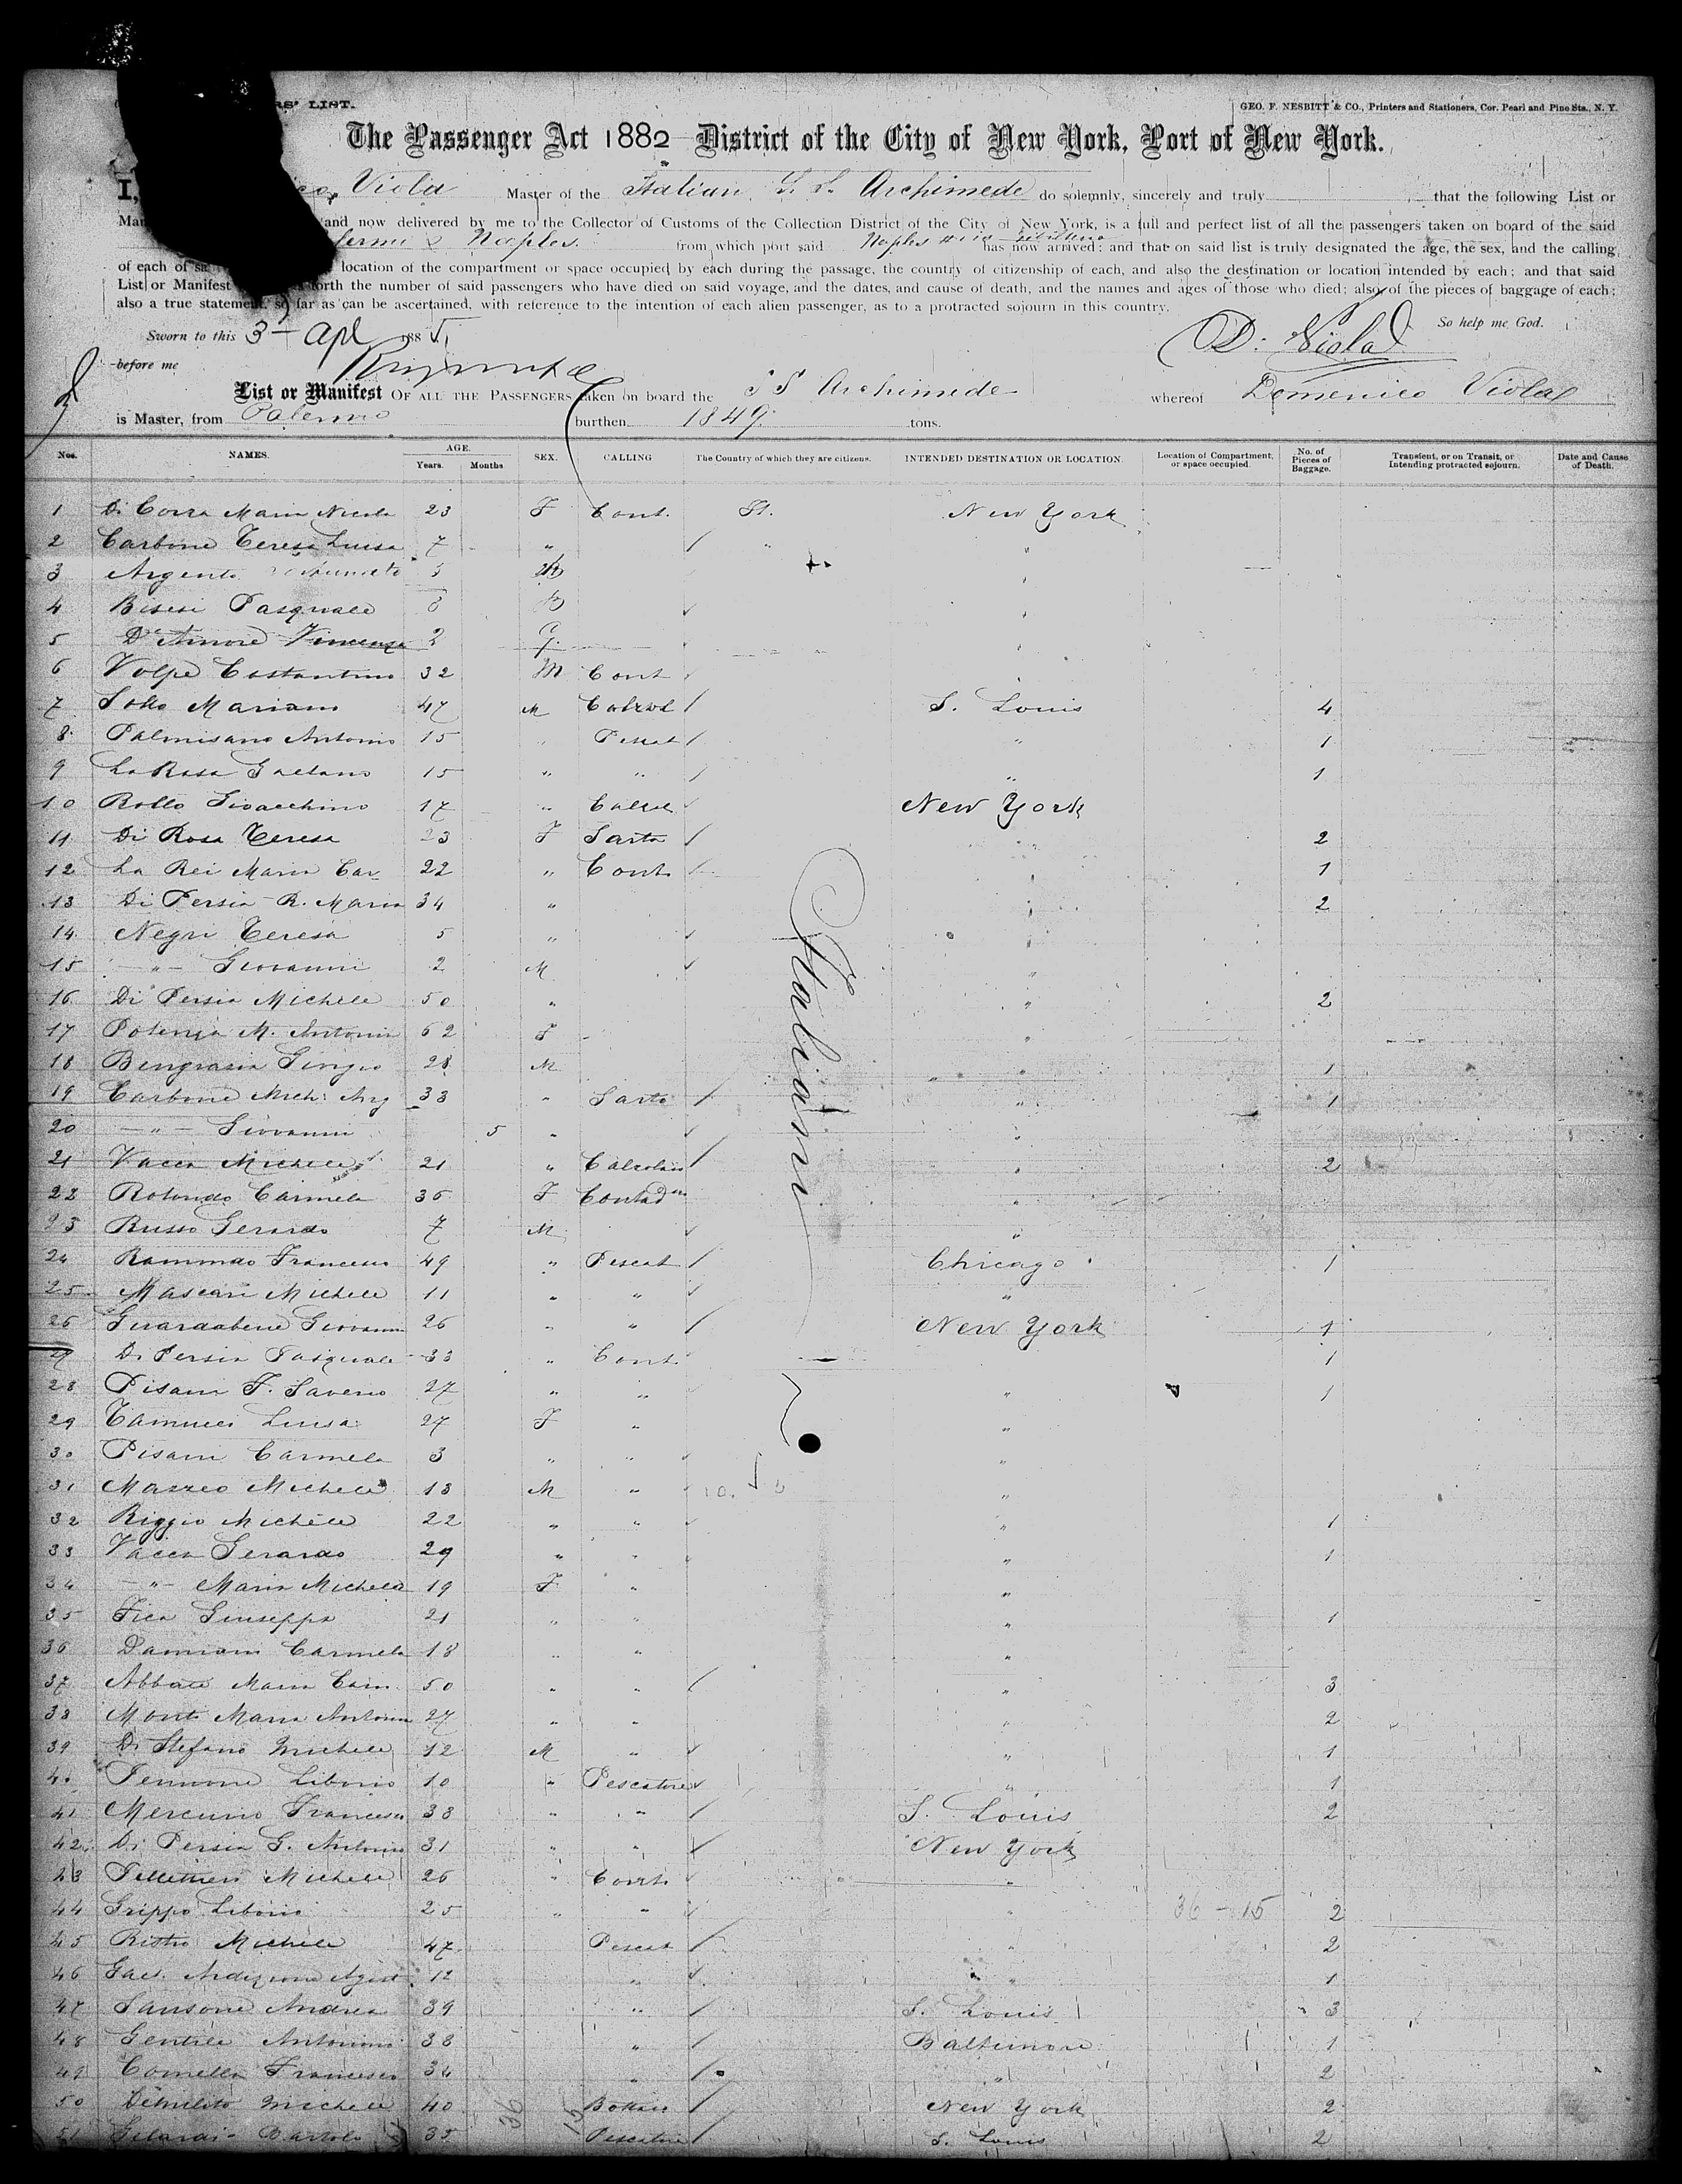 RS' LIST.
GEO. F. NESBITT & CO., Printers and Stationers, Cor. Pearl and Pine Sts., N. Y.
The Passenger Act 1882 District of the City of New York, Port of New York.
I, Viola Master of the Italian S. S. Archimede do solemnly, sincerely and truly that the following List or
and now delivered by me to the Collector of Customs of the Collection District of the City of New York, is a full and perfect list of all the passengers taken on board of the said
& Naples from which port said Naples has now arrived; and that on said list is truly designated the age, the sex, and the calling
of each of location of the compartment or space occupied by each during the passage, the country of citizenship of each, and also the destination or location intended by each; and that said
List or Manifest forth the number of said passengers who have died on said voyage, and the dates, and cause of death, and the names and ages of those who died; also of the pieces of baggage of each;
also a true statement, so far as can be ascertained, with reference to the intention of each alien passenger, as to a protracted sojourn in this country.
So help me God.
Sworn to this 3 – Apl 1885
D. Viola
before me
List or Manifest OF ALL THE PASSENGERS taken on board the S S Archimede whereof Domenico Viola
is Master, from Palermo burthen 1849 tons.
Nos. NAMES. AGE. Years. Months SEX. CALLING The Country of which they are citizens. INTENDED DESTINATION OR LOCATION. Location of Compartment, or space occupied No. of Pieces of Baggage. Transient, or on Transit, or Intending protracted sojourn. Date and Cause of Death.
1 Maria Nicola 23 F Cont. It. New York
2 Carbone Teresa Luisa 7 "
3 Argento
4 Bisesi Pasquale
5 D'Amore Vincenza 2 G.
6 Volpe Costantino 32 M Cont
7 Mariano 47 M S. Louis 4
8 Palmisano Antonio 15 " Pescat " 1
9 La Rosa Gaetano 15 " " " 1
10 Rollo Gioacchino 17 " New York
11 Di Rosa Teresa 23 F Sarta " 2
12 La Rei Maria Car 22 " Cont. " 1
13 Di Persia R. Maria 34 " " 2
14 Negri Teresa 5 " "
15 – " – Giovanni 2 M "
16 Di Persia Michele 50 " " 2
17 Potenza M. Antonia 62 F "
18 Giorgio 28 M " 1
19 Carbone Mich: Ang 33 " Sarto " 1
20 – " – Giovanni 5 " "
21 Vacca Michele 21 " Calzolaio " 2
22 Rotondo Carmela 36 F "
23 Russo Gerardo 7 M "
24 Francesco 49 " Pescat Chicago 1
25 Mascari Michele 11 " " "
26 Giovanni 26 " " New York 1
27 Di Persia Pasquale 33 " Cont. 1
28 Pisani F. Saverio 27 " " " 1
29 Luisa 27 F " "
30 Pisani Carmela 3 " " "
31 Mazzeo Michele 13 M " "
32 Riggio Michele 22 " " " 1
33 Vacca Gerardo 29 " " " 1
34 – " – Maria Michela 19 F " "
35 Fica Giuseppa 21 " " " 1
36 Damiani Carmela 18 " " "
37 Abbate Maria Carm. 50 " " " 3
38 Monte Maria Antonia 27 " " " 2
39 Di Stefano Michele 12 M " " 1
40 Liborio 10 " Pescatore " 1
41 Mercurio Francesco 38 " " S. Louis 2
42 Di Persia G. Antonio 31 " " New York
43 Pellettieri Michele 26 " Cont. "
44 Grippo Liborio 25 " " " 36 – 15 2
45 Michele 47 Pescat " 2
46 12 " " 1
47 Sansone Andrea 39 " S. Louis 3
48 Gentile Antonino 38 " Baltimore 1
49 Comella Francesco 34 " " 2
50 Michele 40 Bottaio New York 2
51 Gelardi Bartolo 35 Pescatore S. Louis 2
Italiani
36
15